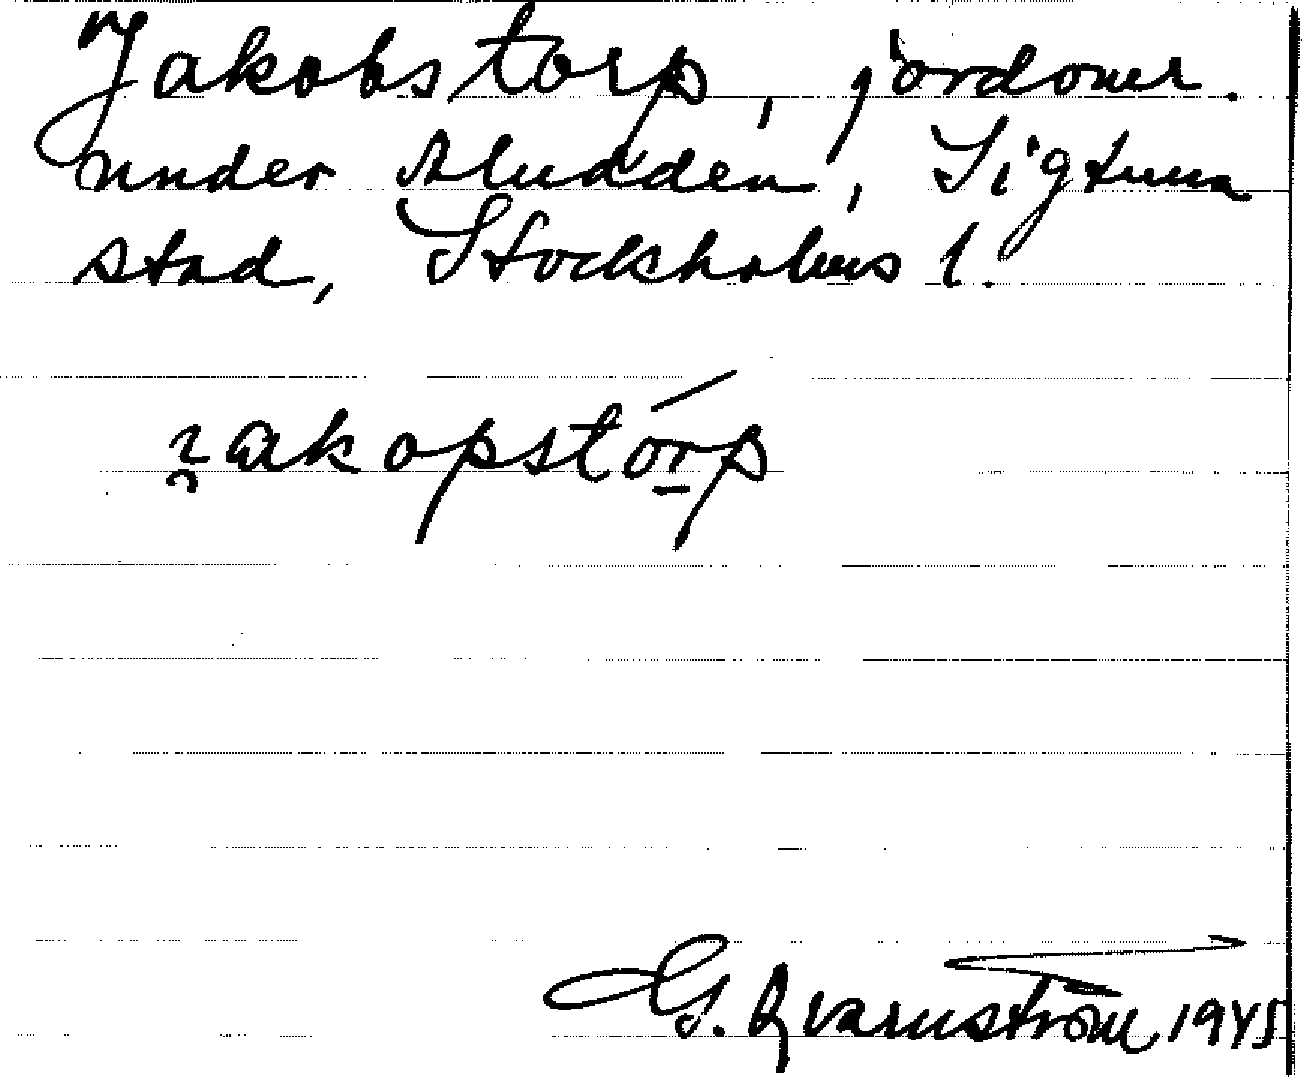 Jakobstorp, jordområ.
under Mudden, Sigtuna
stad, Stockholms l.
ɿakopstórp
G. Qvarnström 1945